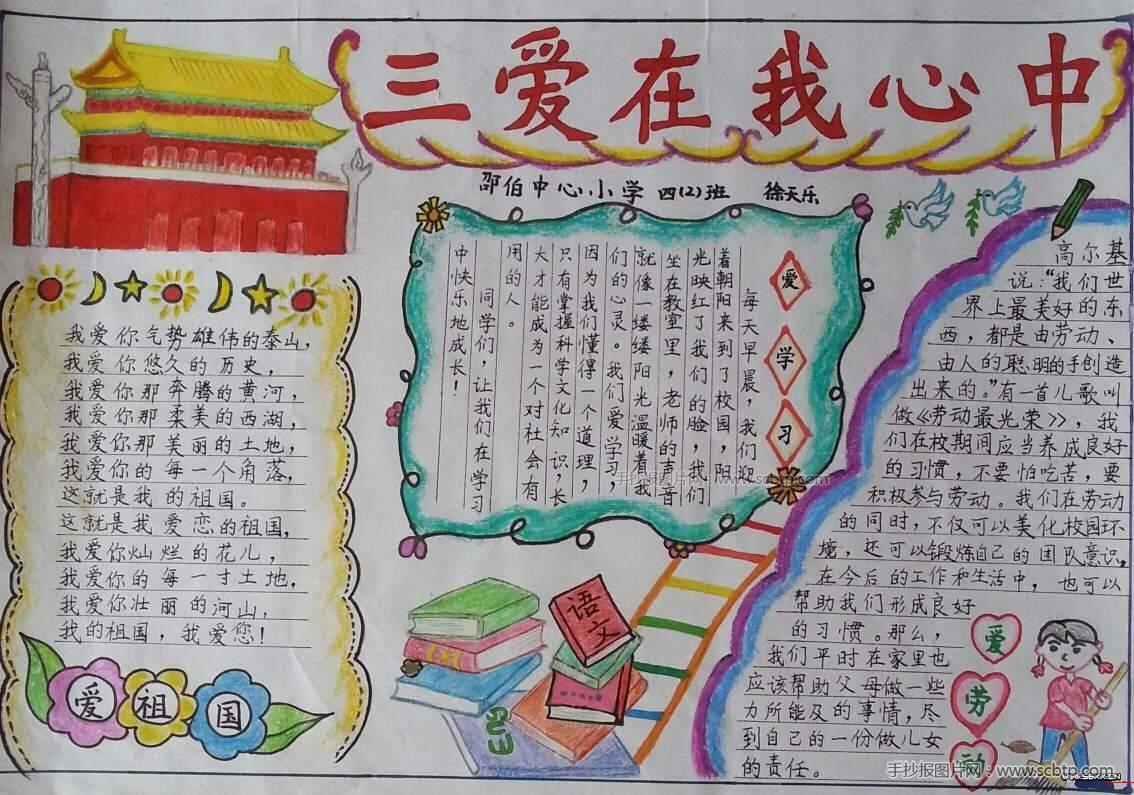 三爱在我心中
邵伯中心小学 四(2)班 徐天乐
我爱你气势雄伟的泰山，
我爱你悠久的历史，
我爱你那奔腾的黄河，
我爱你那柔美的西湖，
我爱你那美丽的土地，
我爱你的每一个角落，
这就是我的祖国。
这就是我爱恋的祖国，
我爱你灿烂的花儿，
我爱你的每一寸土地，
我爱你壮丽的河山，
我的祖国，我爱您！
爱祖国
爱学习
每天早晨，我们迎
着朝阳来到了校园，阳
光映红了我们的脸，我们
坐在教室里，老师的声音
就像一缕缕阳光温暖着我
们的心灵。我们爱学习，
因为我们懂得一个道理，
只有掌握科学文化知识，长
大才能成为一个对社会有
用的人。
同学们，让我们在学习
中快乐地成长！
手抄报图片网：www.scbtp.com
语文
高尔基
说：“我们世
界上最美好的东
西，都是由劳动、
由人的聪明的手创造
出来的。”有一首儿歌叫
做《劳动最光荣》，我
们在校期间应当养成良好
的习惯，不要怕吃苦，要
积极参与劳动。我们在劳动
的同时，不仅可以美化校园环
境，还可以锻炼自己的团队意识，
在今后的工作和生活中，也可以
帮助我们形成良好
的习惯。那么，
我们平时在家里也
应该帮助父母做一些
力所能及的事情，尽
到自己的一份做儿女
的责任。
爱劳动
手抄报图片网：www.scbtp.com